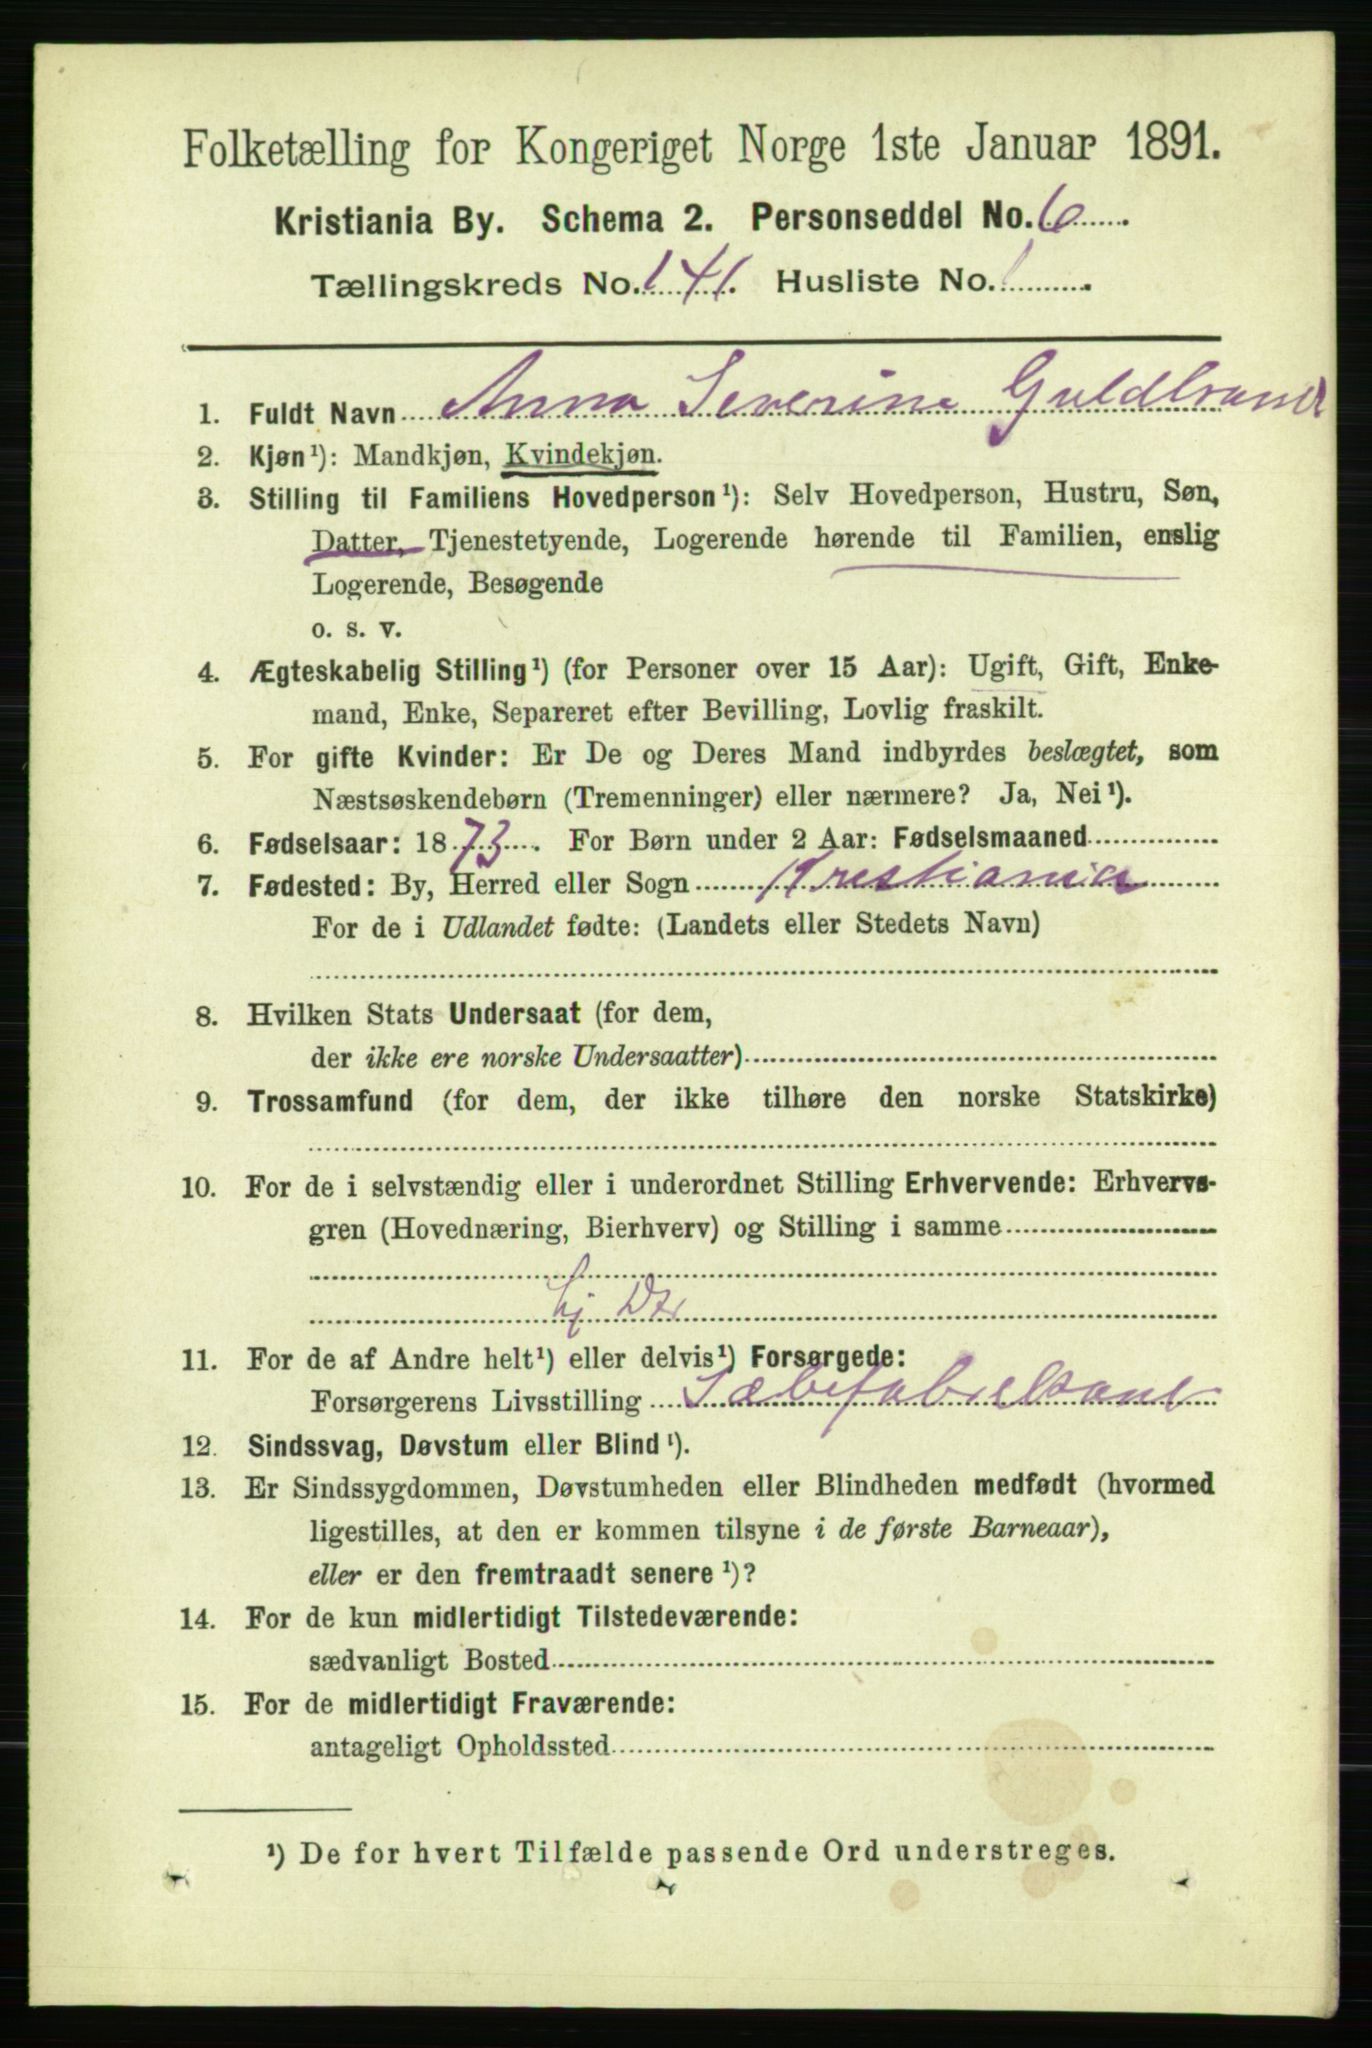 Folketælling for Kongeriget Norge 1ste Januar 1891.
Kristiania By. Schema 2. Personseddel No. 6
Tællingskreds No. 141. Husliste No. 1
1. Fuldt Navn Anna Severine Guldbrand
2. Kjøn¹): Mandkjøn, Kvindekjøn.
3. Stilling til Familiens Hovedperson¹): Selv Hovedperson, Hustru, Søn,
Datter, Tjenestetyende, Logerende hørende til Familien, enslig
Logerende, Besøgende
o. s. v.
4. Ægteskabelig Stilling¹) (for Personer over 15 Aar): Ugift, Gift, Enke-
mand, Enke, Separeret efter Bevilling, Lovlig fraskilt.
5. For gifte Kvinder: Er De og Deres Mand indbyrdes beslægtet, som
Næstsøskendebørn (Tremenninger) eller nærmere? Ja, Nei¹).
6. Fødselsaar: 1873. For Børn under 2 Aar: Fødselsmaaned
7. Fødested: By, Herred eller Sogn Kristiania
For de i Udlandet fødte: (Landets eller Stedets Navn)
8. Hvilken Stats Undersaat (for dem,
der ikke ere norske Undersaatter)
9. Trossamfund (for dem, der ikke tilhøre den norske Statskirke)
10. For de i selvstændig eller i underordnet Stilling Erhvervende: Erhvervs-
gren (Hovednæring, Bierhverv) og Stilling i samme
11. For de af Andre helt¹) eller delvis¹) Forsørgede:
Forsørgerens Livsstilling
12. Sindssvag, Døvstum eller Blind¹).
13. Er Sindssygdommen, Døvstumheden eller Blindheden medfødt (hvormed
ligestilles, at den er kommen tilsyne i de første Barneaar),
eller er den fremtraadt senere¹)?
14. For de kun midlertidigt Tilstedeværende:
sædvanligt Bosted
15. For de midlertidigt Fraværende:
antageligt Opholdssted
¹) De for hvert Tilfælde passende Ord understreges.